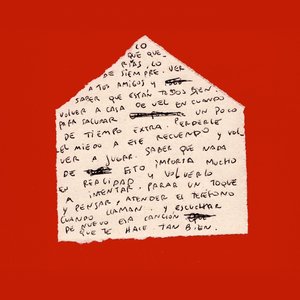 LO
QUE QUE-
RÍAS, LO
DE SIEMPRE. VER
A TUS AMIGOS Y
SABER QUE ESTÁN TODOS BIEN.
VOLVER A CASA DE VEZ EN CUANDO
PARA SALUDAR UN POCO
DE TIEMPO EXTRA. PERDERLE
EL MIEDO A ESE RECUERDO Y VOL
VER A JUGAR. SABER QUE NADA
DE ESTO IMPORTA MUCHO
EN REALIDAD Y VOLVERLO
A INTENTAR. PARAR UN TOQUE
Y PENSAR, ATENDER EL TELÉFONO
CUANDO LLAMAN. Y ESCUCHAR
DE NUEVO ESA CANCIÓN
QUE TE HACE TAN BIEN.